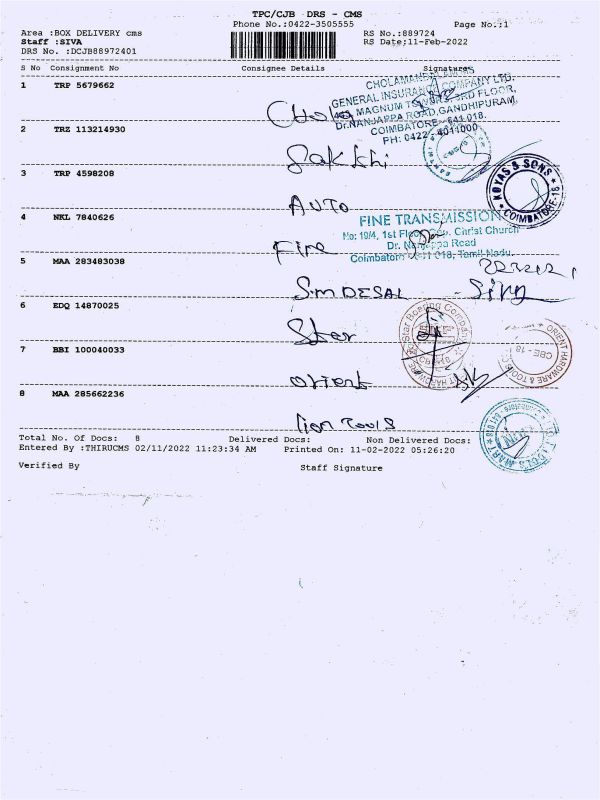 TPC/CJB DRS - CMS
Phone No.:0422-3505555
Page No.:1
Area :BOX DELIVERY cms
RS No.:889724
Staff :SIVA
RS Date;11-Feb-2022
DRS No. :DCJB88972401
S No Consignment No Consignee Details Signatures
1 TRP 5679662
Chola
CHOLAMANDALAM MS
GENERAL INSURANCE COMPANY LTD.
MAGNUM TOWERS, 3RD FLOOR,
Dr.NANJAPPA ROAD,GANDHIPURAM,
COIMBATORE - 641 018.
PH: 0422 - 4011000
2 TRZ 113214930
Sakthi
3 TRP 4598208
AUTO
KOYAS & SONS
COIMBATORE-18
4 NKL 7840626
Fine
FINE TRANSMISSION
No: 19/4, 1st Floor, Opp. Christ Church
Dr. Nanjappa Road
Coimbatore - 641 018, Tamil Nadu.
5 MAA 283483038
S.M DESAI - Siva
6 EDQ 14870025
Star
Star Bearing Company
7 BBI 100040033
Orient
ORIENT HARDWARE & TOOLS
CBE - 18
8 MAA 285662236
lion Tools
Total No. Of Docs: 8 Delivered Docs: Non Delivered Docs:
Entered By :THIRUCMS 02/11/2022 11:23:34 AM Printed On: 11-02-2022 05:26:20
Verified By Staff Signature